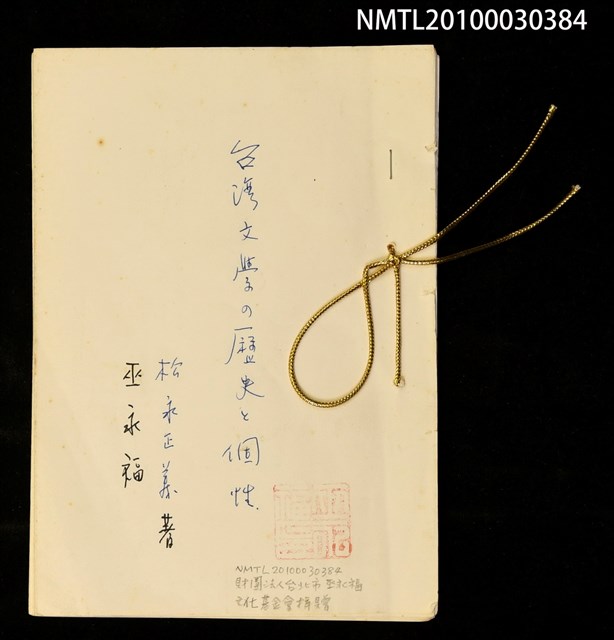 NMTL20100030384
台湾文学の歴史と個性
松永正義著
巫永福
NMTL20100030384
財團法人台北市巫永福
文化基金會捐贈